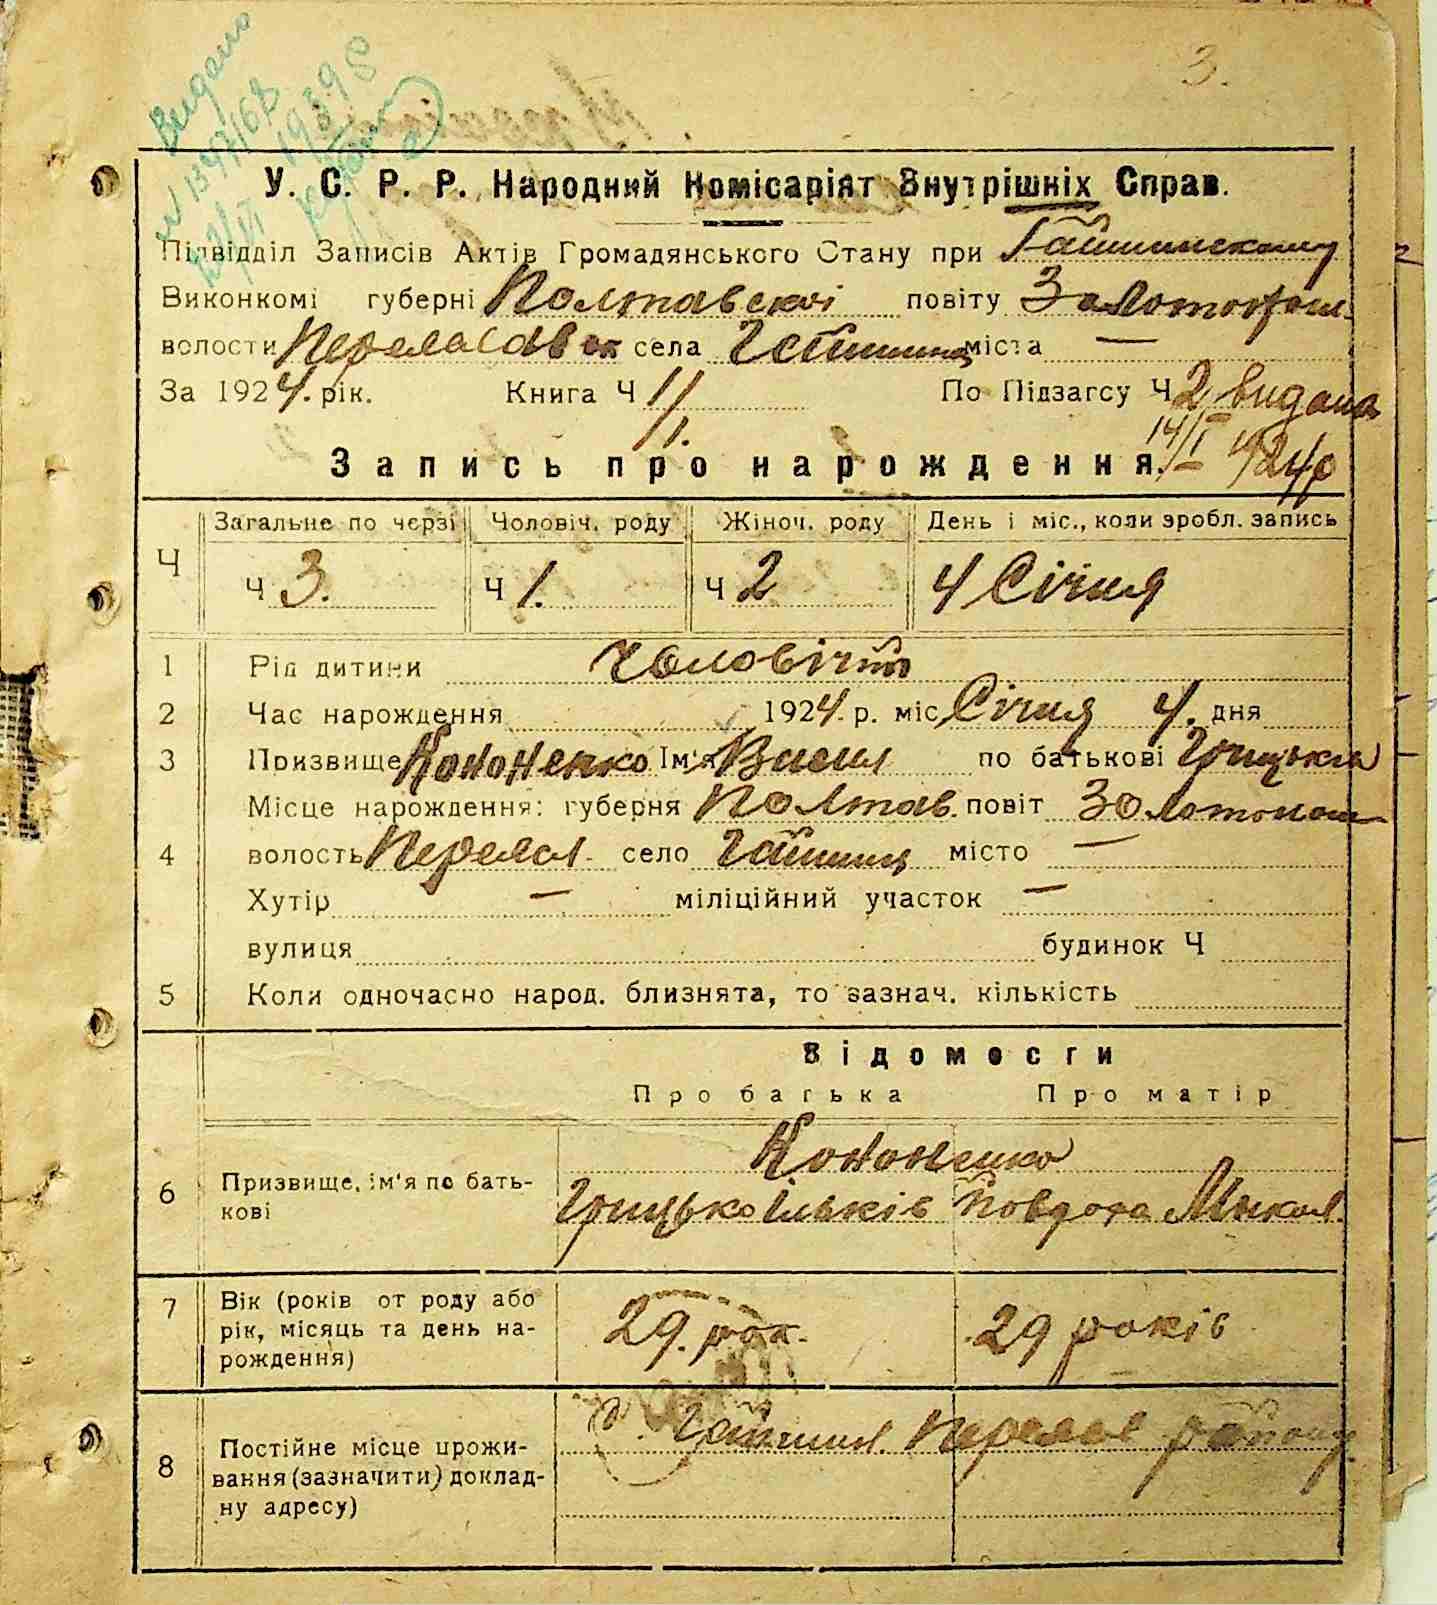 3.
Видано
У. С. Р. Р. Народний Комісаріят Внутрішніх Справ.
Підвідділ Записів Актів Громадянського Стану при Гайшинскому
Виконкомі губерні Полтавскої повіту Золотонош.
волости Переяславск села Гайшинц міста —
За 1924. рік. Книга Ч 1/1. По Підзагсу Ч 2 видана
14/I 1924р
Запись про народження.
Ч Загальне по черзі Чоловіч. роду Жіноч. роду День і міс., коли зробл. запись
Ч 3. Ч 1. Ч 2 4 Січня
1 Рід дитини Чоловічий
2 Час народження 1924. р. міс Січня 4. дня
3 Призвище Кононенко Ім'я Васил по батькові Грицьків
Місце народження: губерня Полтав. повіт Золотонош
4 волость Переясл. село Гайшинц місто —
Хутір — міліційний участок —
вулиця будинок Ч
5 Коли одночасно народ. близнята, то зазнач. кількість
Відомости
Про батька Про матір
Кононенко
6 Призвище, ім'я по бать-
кові
Грицько Ільків Явдоха Микол.
7 Вік (років от роду або
рік, місяць та день на-
рождення)
29. рок. 29 років
8 Постійне місце прожи-
вання (зазначити) доклад-
ну адресу)
Гайшин. Переясл району